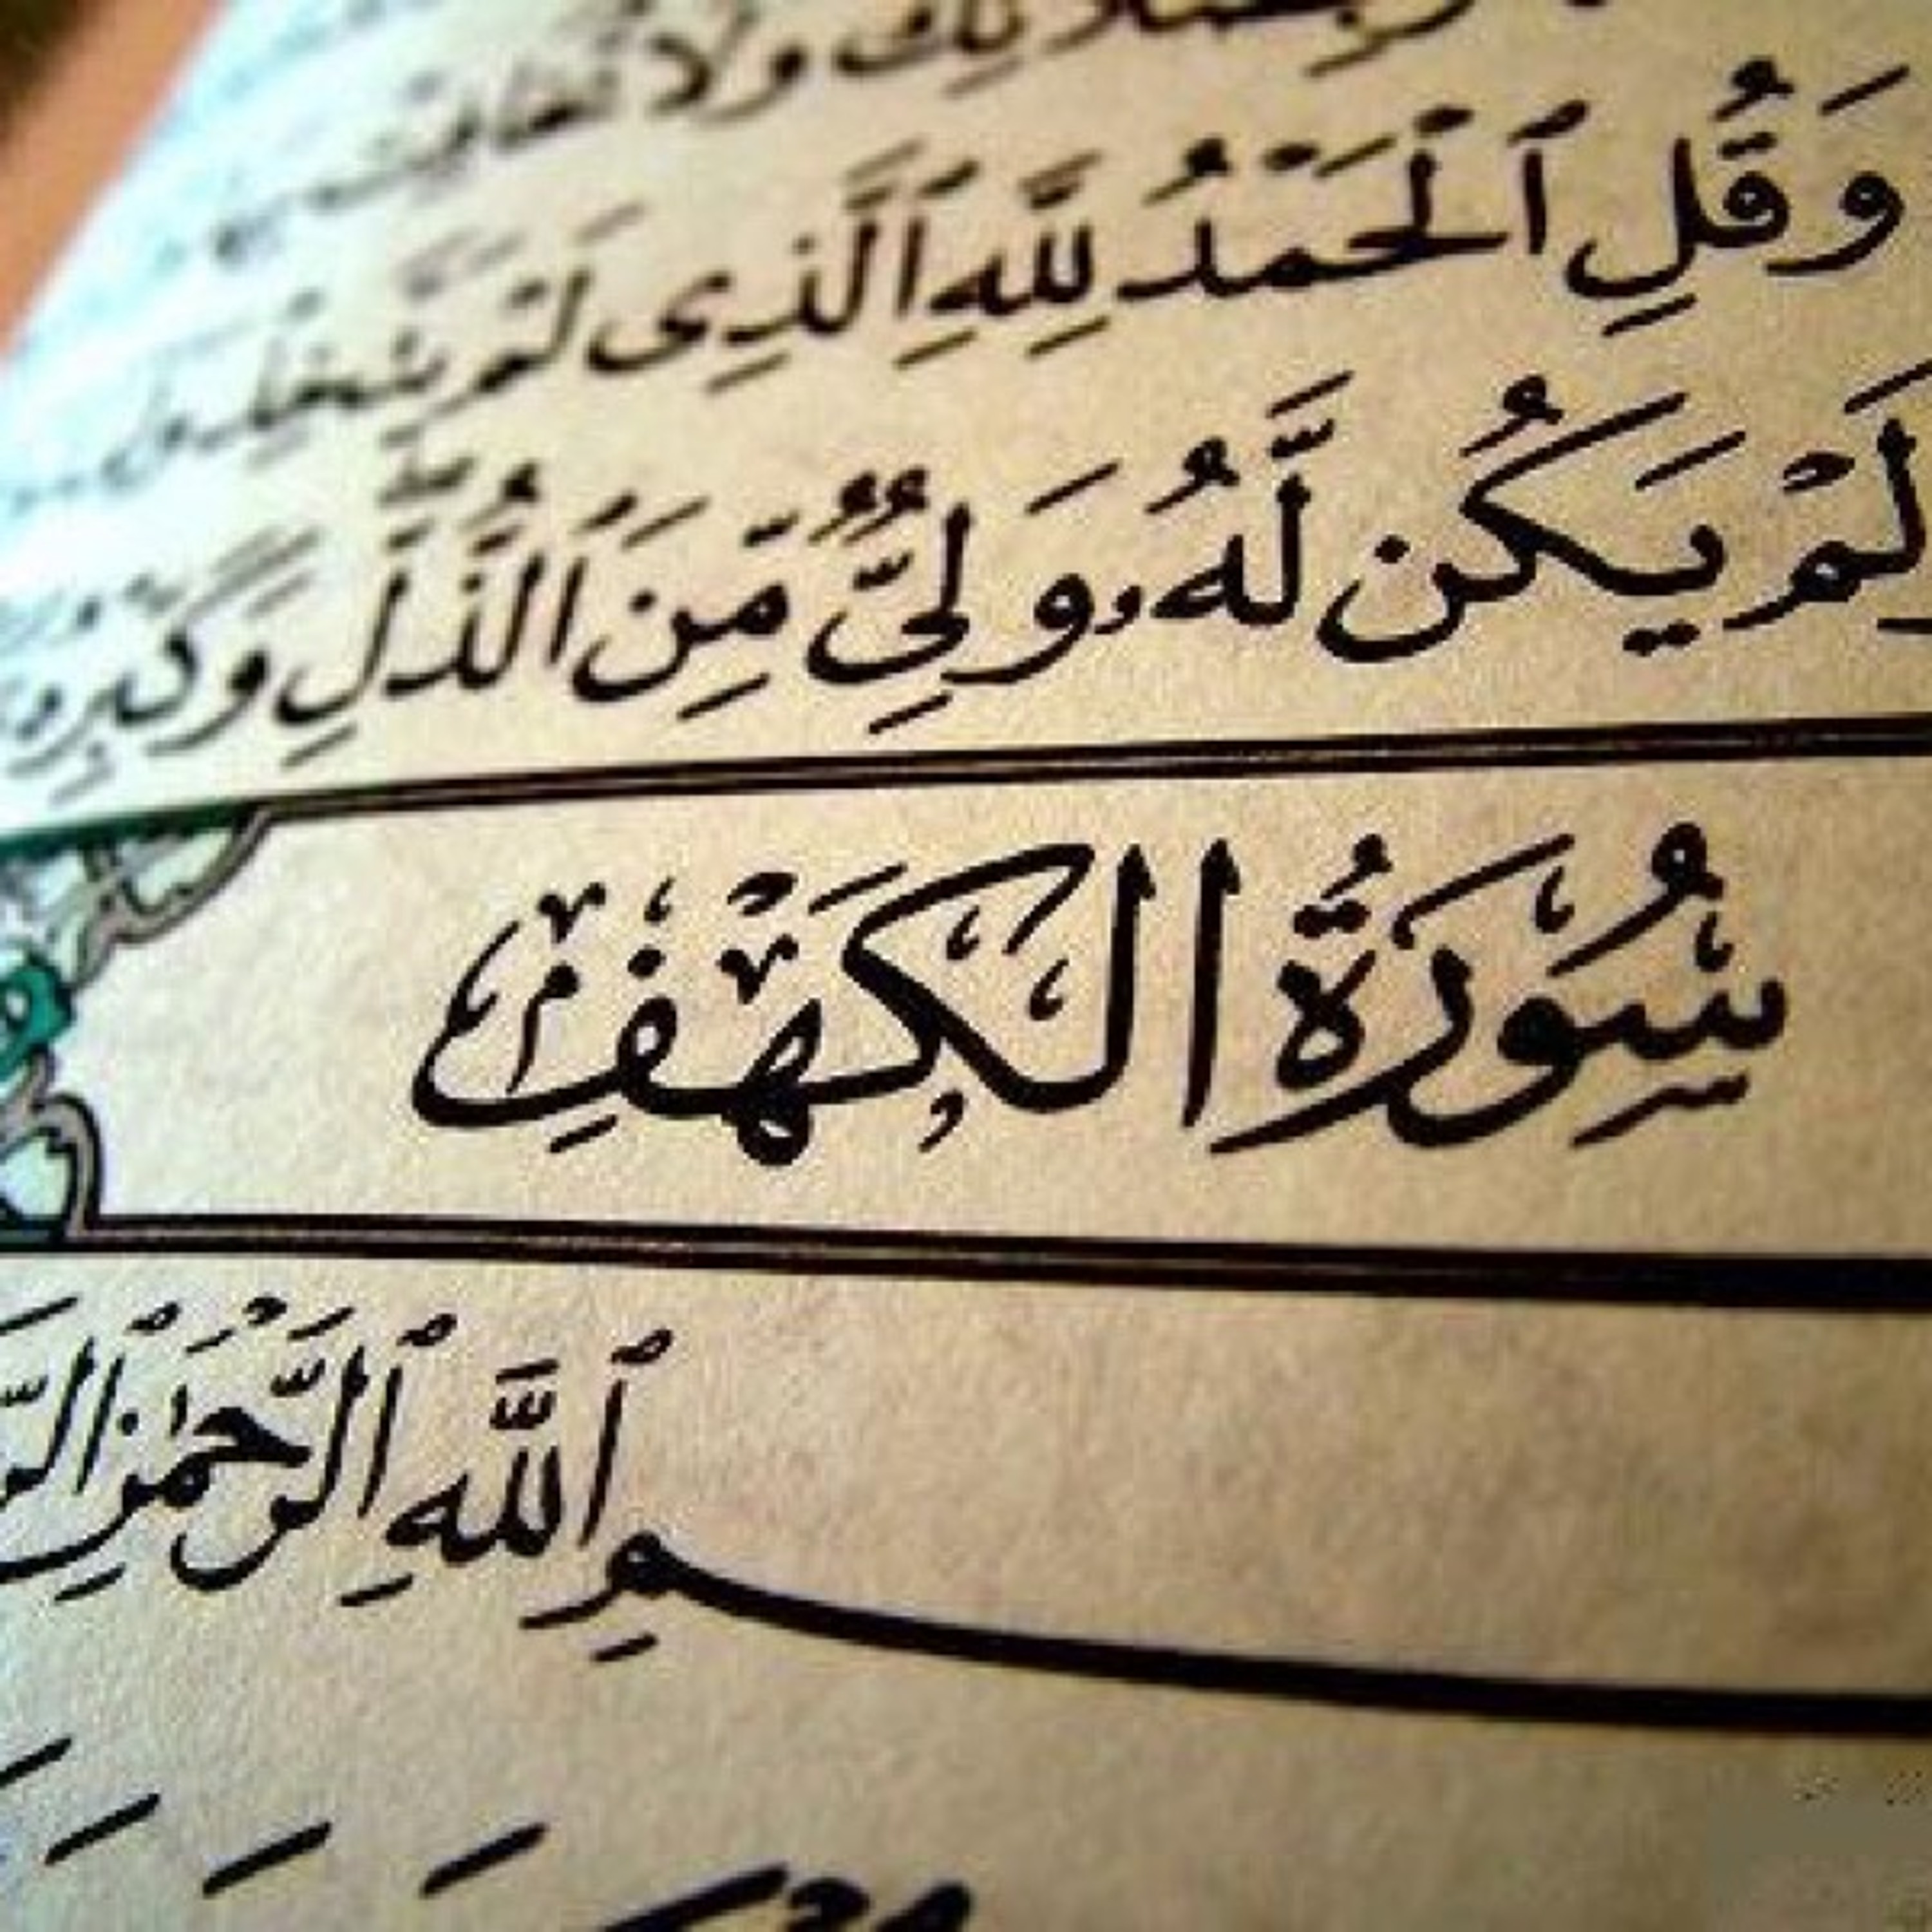 بِصَلَاتِكَ وَلَا تُخَافِتْ
وَقُلِ ٱلْحَمْدُ لِلَّهِ ٱلَّذِى لَمْ يَتَّخِذْ
لَمْ يَكُن لَّهُۥ وَلِىٌّ مِّنَ ٱلذُّلِّ وَكَبِّرْهُ
سُورَةُ الْكَهْفِ
ـسْمِ ٱللَّهِ ٱلرَّحْمَٰنِ